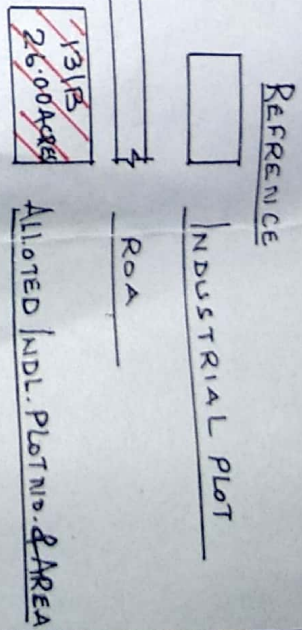 REFRENCE
INDUSTRIAL PLOT
ROA
131B
26.00 ACRES
ALLOTED INDL. PLOT NO. & AREA